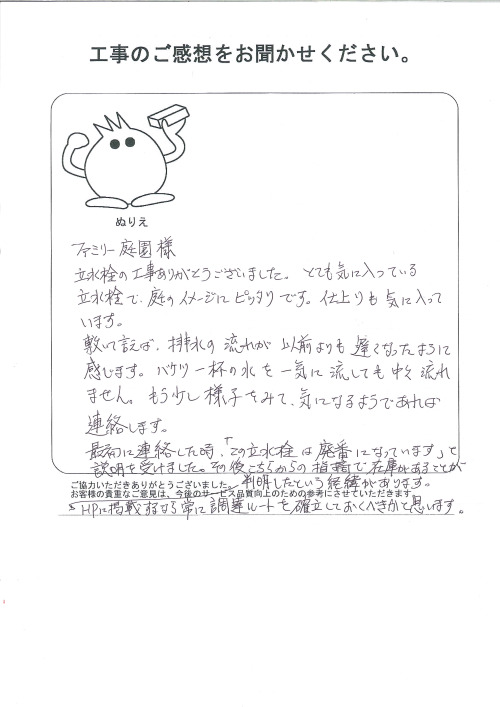 工事のご感想をお聞かせください。
ぬりえ
ファミリー庭園様
立水栓の工事ありがとうございました。とても気に入っている
立水栓で、庭のイメージにピッタリです。仕上りも気に入って
います。
敷いて言えば、排水の流れが以前よりも遅くなったように
感じます。バケツ一杯の水を一気に流しても中々流れ
ません。もう少し様子をみて、気になるようであれば
連絡します。
最初に連絡した時、「この立水栓は廃番になっています」と
説明を受けました。その後こちらからの指摘で在庫があることが
判明したという経緯があります。
ご協力いただきありがとうございました。
お客様の貴重なご意見は、今後のサービス品質向上のための参考にさせていただきます。
HPに掲載するなら常に調達ルートを確立しておくべきかと思います。